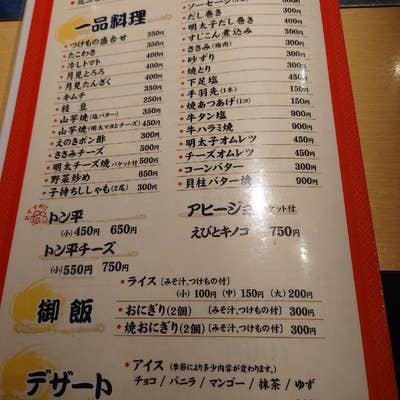 一品料理
つけもの盛合せ 350円
たこわさ 350円
冷しトマト 400円
月見とろろ 400円
月見たんざく 400円
キムチ 350円
枝豆 250円
山芋焼(塩バター) 350円
山芋焼(明太マヨとチーズ) 450円
えのきポン酢 300円
ささみチーズ 500円
明太チーズ焼 バケット付 500円
野菜炒め 650円
子持ちししゃも(2尾) 300円
ソーセージ
だし巻き 300円
明太子だし巻き 400円
すじこん煮込み
ささみ(梅肉)
砂ずり 300円
焼とり
下足塩
手羽先(1本) 150円
焼あつあげ(1コ) 150円
牛タン塩 900円
牛ハラミ焼 900円
明太子オムレツ
チーズオムレツ
コーンバター 300円
貝柱バター焼 900円
トン平
(小)450円 650円
トン平チーズ
(小)550円 750円
アヒージョ バケット付
えびとキノコ 750円
御飯
ライス〔みそ汁、つけもの付〕
(小)100円 (中)150円 (大)200円
おにぎり(2個)〔みそ汁、つけもの付〕300円
焼おにぎり(2個)〔みそ汁、つけもの付〕300円
デザート
アイス(季節により多少内容が変わります。)
チョコ / バニラ / マンゴー / 抹茶 / ゆず